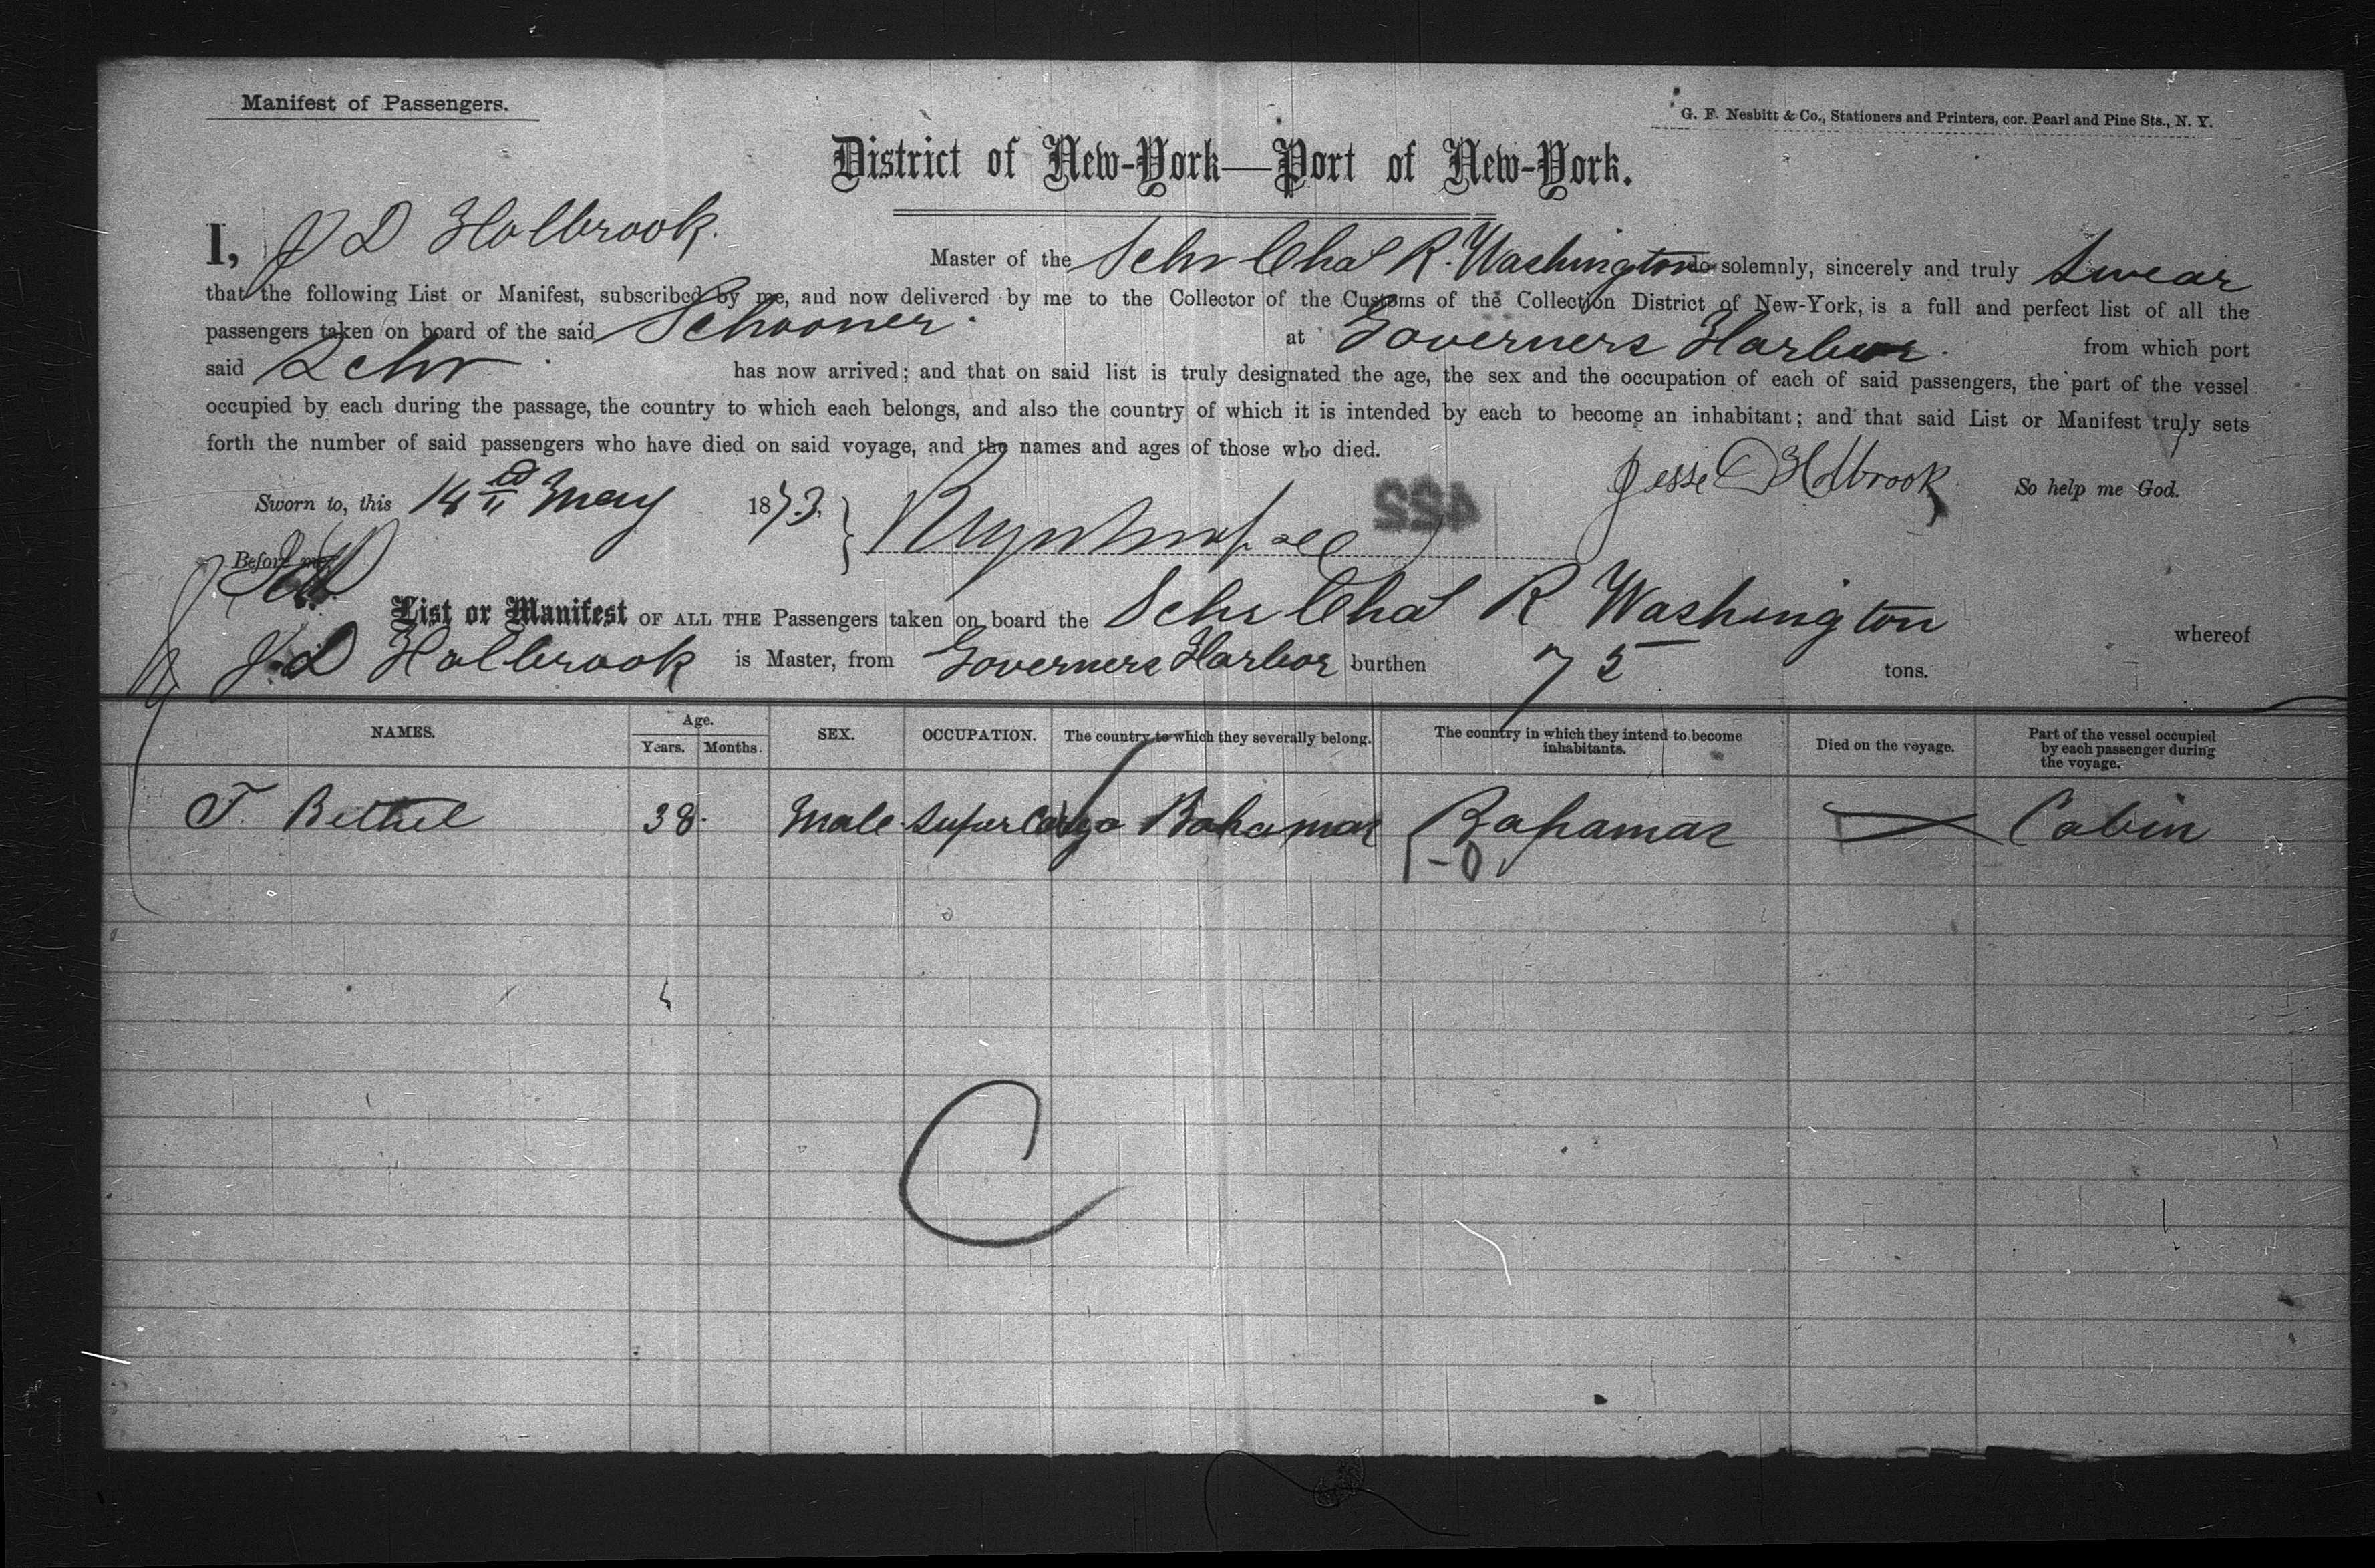 Manifest of Passengers.
G. F. Nesbitt & Co., Stationers and Printers, cor. Pearl and Pine Sts., N. Y.
District of New-York—Port of New-York.
I, J D Holbrook. Master of the Schr Chas R. Washington do solemnly, sincerely and truly swear
that the following List or Manifest, subscribed by me, and now delivered by me to the Collector of the Customs of the Collection District of New-York, is a full and perfect list of all the
passengers taken on board of the said Schooner at Governers Harbor. from which port
said Schr has now arrived; and that on said list is truly designated the age, the sex and the occupation of each of said passengers, the part of the vessel
occupied by each during the passage, the country to which each belongs, and also the country of which it is intended by each to become an inhabitant; and that said List or Manifest truly sets
forth the number of said passengers who have died on said voyage, and the names and ages of those who died.
Jesse D Holbrook So help me God.
Sworn to, this 14 May 1873.
455
Before me,
List or Manifest OF ALL THE Passengers taken on board the Schr Chas R Washington whereof
J D Holbrook is Master, from Governers Harbor burthen 75 tons.
NAMES. Age. Years. Months. SEX. OCCUPATION. The country to which they severally belong. The country in which they intend to become inhabitants. Died on the voyage. Part of the vessel occupied by each passenger during the voyage.
T. Bethel 38 Male Supercargo Bahamas Bahamas Cabin
1-0
C